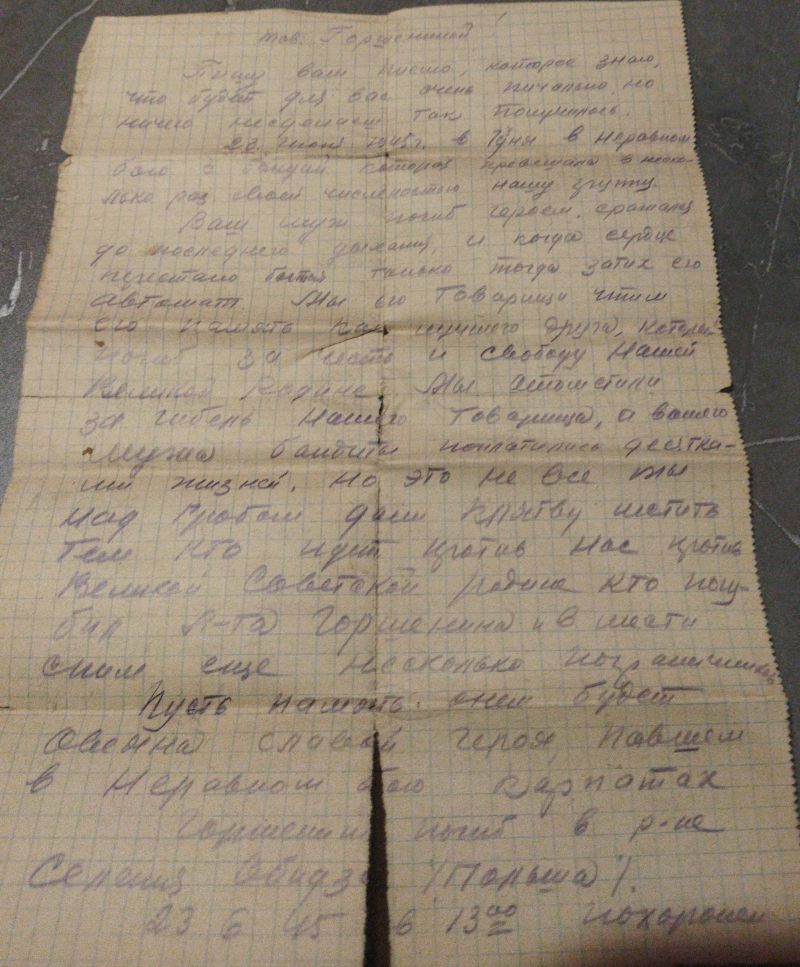 тов. Горшениной!
Пишу вам письмо, которое знаю,
что будет для вас очень пичально, но
ничего несделаеш так получилось.
23 июня 1945 г. в 1 дня в неравном
бою с бандой которая превышала в неско-
лько раз своей численостью нашу группу.
Ваш муж погиб героем, сражался
до последнего дыхания, и когда сердце
перестало биться только тогда затих его
автомат. Мы его товарищи чтим
его память как лучшего друга, который
погиб за честь и свободу нашей
Великой Родине. Мы отомстили
за гибель нашего товарища, а вашего
мужа бандиты поплатились десятка-
ми жизней. Но это не все мы
над гробом дали клятву мстить
тем кто идет против нас против
Великой Советской родине кто погу-
бил Л-та Горшенина и в мести
сним еще несколько пограничников
Пусть память онем будет
Овеяна славой героя, павшем
в неравном бою Карпатах
Горшенин погиб в р-не
Селения Обидза /Польша/.
23 6 45 в 13 00 похоронен